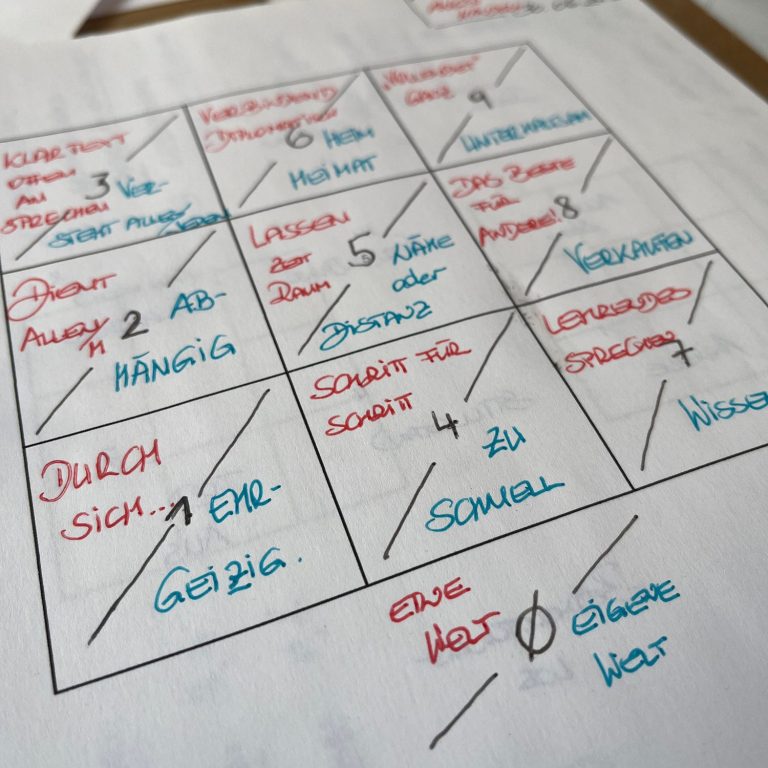 KLARTEXT
OFFEN
AN
SPRECHEN
3 VER-
STEHT ALLES/
JEDEN
VERBINDEND
DIPLOMATISCH
6 HEIM
HEIMAT
GANZ
9
UNTERHALTSAM
DIENT
ALLEN/
M
2 AB-
HÄNGIG
LASSEN
ZEIT
RAUM
5 NÄHE
oder
DISTANZ
DAS BESTE
FÜR
ANDERE!
8
VERKAUFEN
DURCH
SICH...
1 EHR-
GEIZIG.
SCHRITT FÜR
SCHRITT
4 ZU
SCHNELL
LEHRENDES
SPRECHEN
7
WISSEN
EINE
WELT
0 EIGENE
WELT